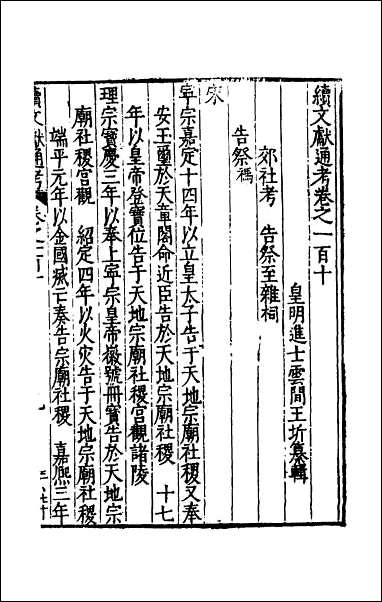 續文獻通考卷之一百十
皇明進士雲間王圻纂輯
郊社考　告祭至雜祠
告祭禡
宋
寧宗嘉定十四年以立皇太子告于天地宗廟社稷又奉
安玉璽於天章閣命近臣告於天地宗廟社稷　十七
年以皇帝登寶位告于天地宗廟社稷宮觀諸陵
理宗寶慶三年以奉上寧宗皇帝徽號冊寶告於天地宗
廟社稷宮觀　紹定四年以火灾告于天地宗廟社稷
端平元年以金國滅亡奏告宗廟社稷　嘉熙三年
續文獻通考